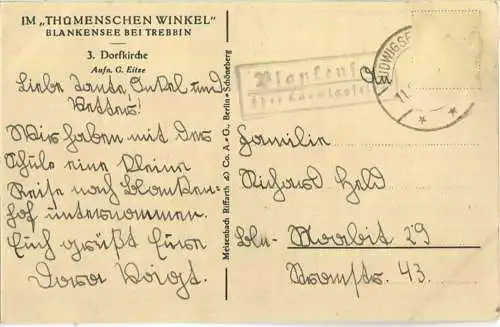 IM „THÜMENSCHEN WINKEL"
BLANKENSEE BEI TREBBIN
3. Dorfkirche
Aufn. G. Eitze
Liebe Tante, Onkel und
Vetter!
Wir haben mit der
Schule eine kleine
Reise nach Blanken-
hof unternommen.
Euch grüßt Eure
Dora Voigt.
Meisenbach Riffarth & Co. A.-G., Berlin-Schöneberg
Blankens
über Ludwigsfel
LUDWIGSF
11
Familie
Richard Held
Bln- Moabit 29
Stromstr. 43.